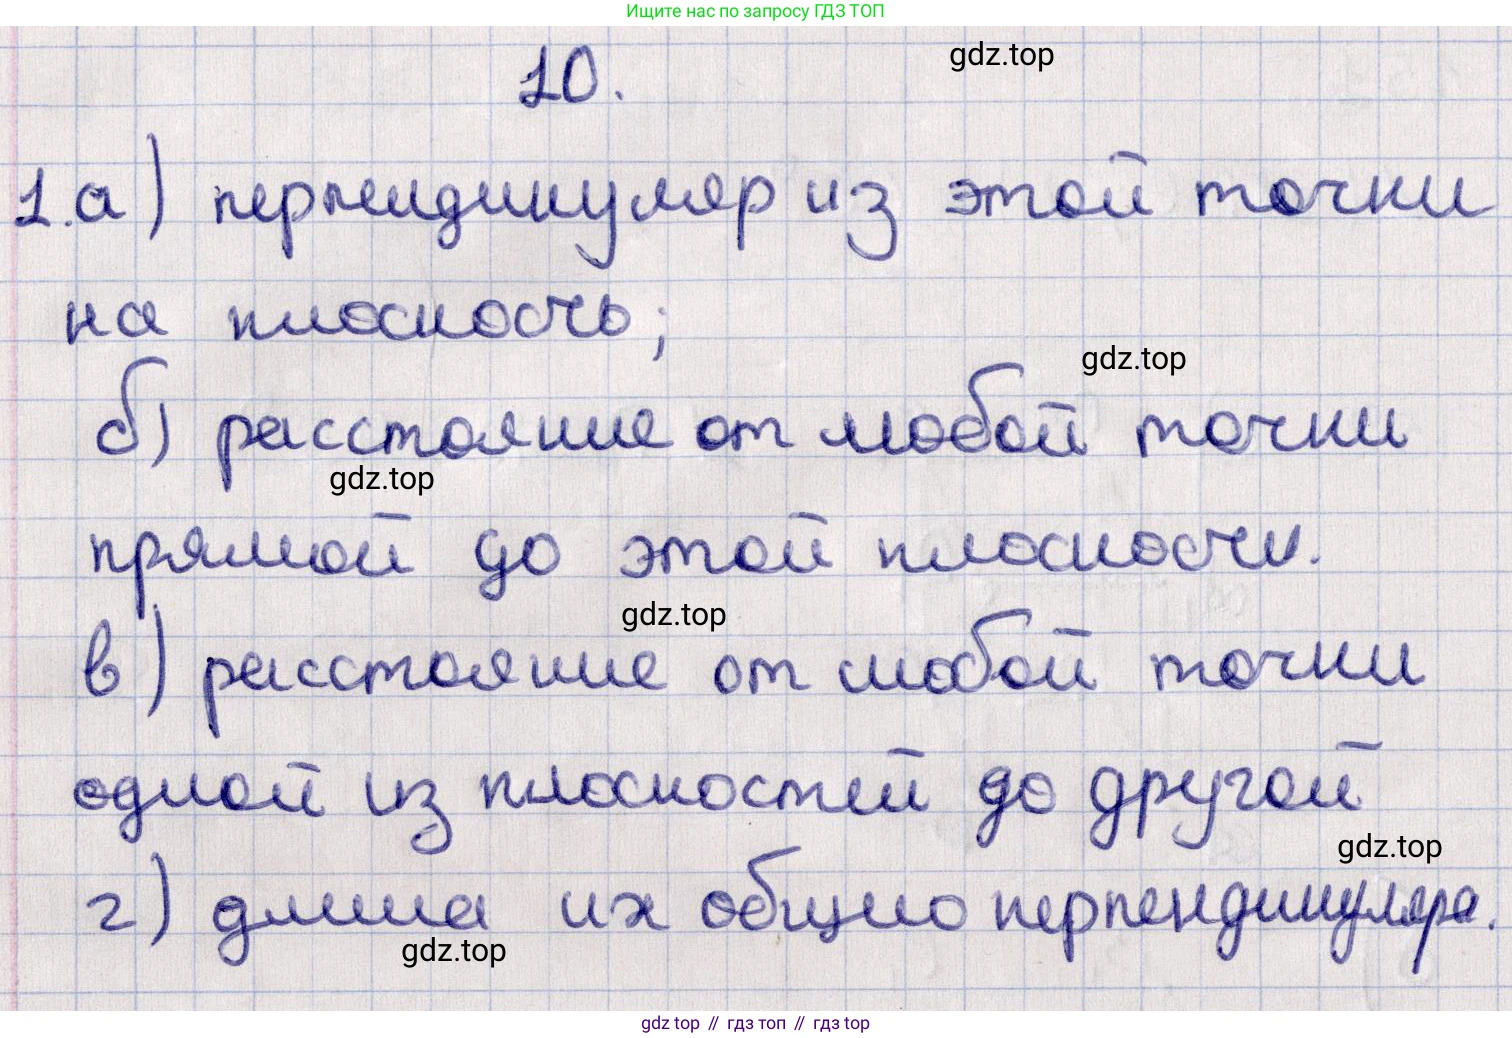 Ищите нас по запросу ГДЗ ТОП
10.
gdz.top
1.а) перпендикуляр из этой точки
на плоскость;
gdz.top
б) расстояние от любой точки
gdz.top
прямой до этой плоскости.
gdz.top
в) расстояние от любой точки
одной из плоскостей до другой
gdz.top
г) длина их общно перпендикуляра.
gdz.top
gdz top // гдз топ // гдз top